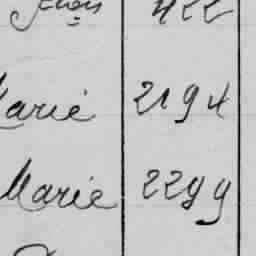 422
Marie 2194
Marie 2299